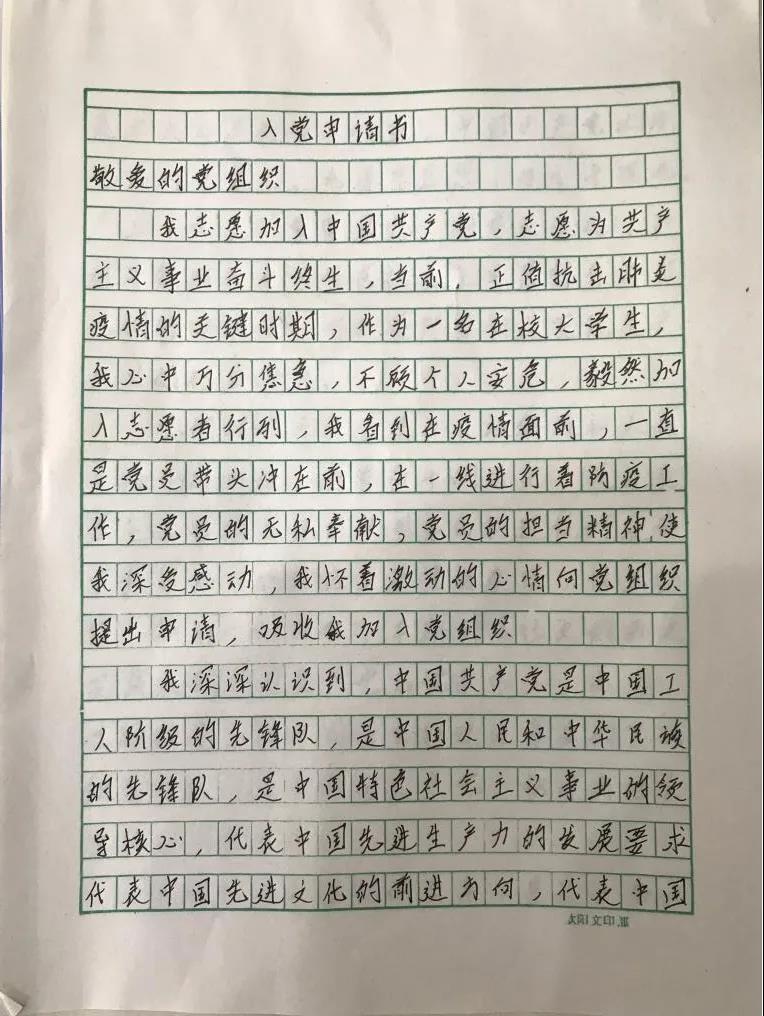 入党申请书
敬爱的党组织
我志愿加入中国共产党,志愿为共产
主义事业奋斗终生,当前,正值抗击肺炎
疫情的关键时期,作为一名在校大学生,
我心中万分焦急,不顾个人安危,毅然加
入志愿者行列,我看到在疫情面前,一直
是党员带头冲在前,在一线进行着防疫工
作,党员的无私奉献,党员的担当精神使
我深受感动,我怀着激动的心情向党组织
提出申请,吸收我加入党组织
我深深认识到,中国共产党是中国工
人阶级的先锋队,是中国人民和中华民族
的先锋队,是中国特色社会主义事业的领
导核心,代表中国先进生产力的发展要求
代表中国先进文化的前进方向,代表中国